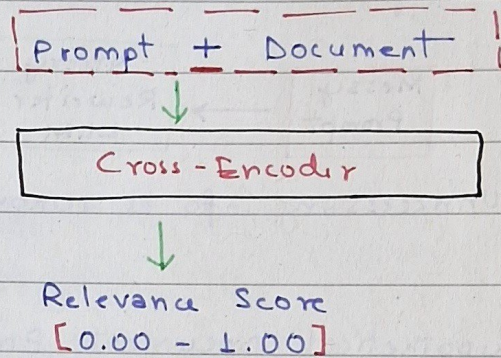 Prompt + Document
Cross-Encoder
Relevance Score
[0.00 - 1.00]